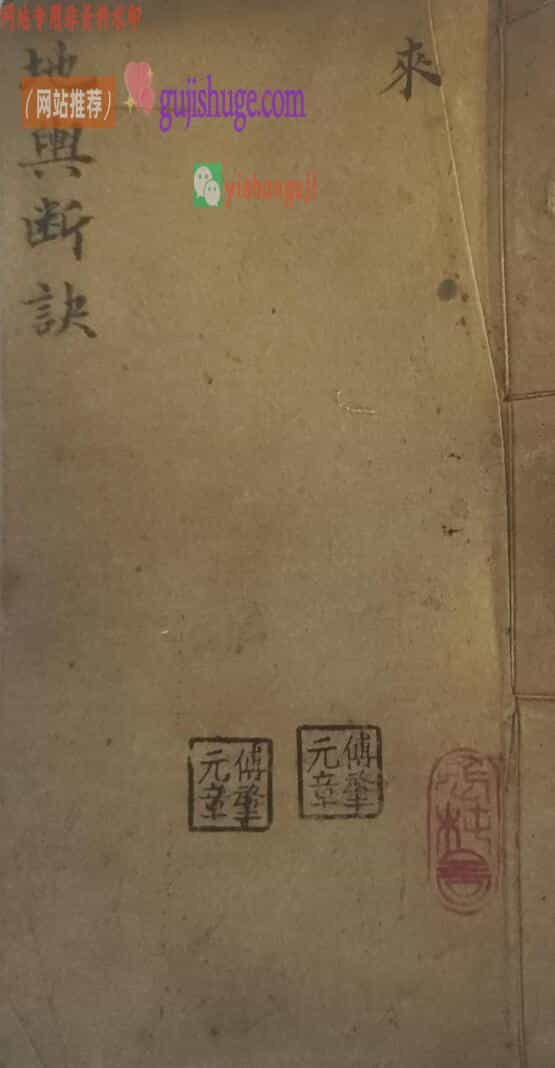 网站专用非卖品水印
（网站推荐）
gujishuge.com
yishanguji
來
地輿断訣
傅肇
元章
傅肇
元章